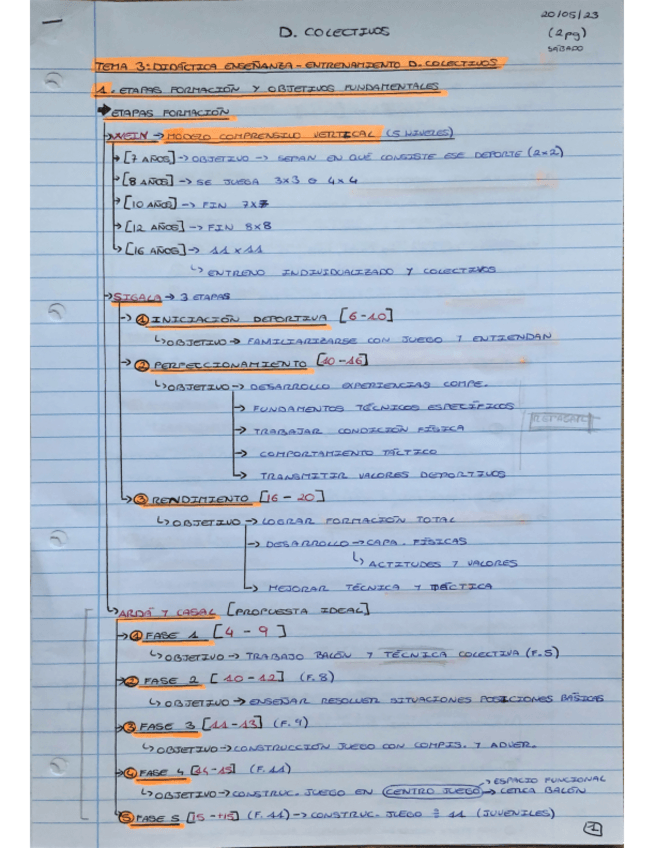 20/05/23
D. COLECTIVOS
(2pg)
SÁBADO
TEMA 3: DIDÁCTICA ENSEÑANZA - ENTRENAMIENTO D. COLECTIVOS
1. ETAPAS FORMACIÓN Y OBJETIVOS FUNDAMENTALES
→ ETAPAS FORMACIÓN
→ WEIN → MODELO COMPRENSIVO VERTICAL (5 NIVELES)
→ [7 AÑOS] → OBJETIVO → SEPAN EN QUÉ CONSISTE ESE DEPORTE (2×2)
→ [8 AÑOS] → SE JUEGA 3×3 O 4×4
→ [10 AÑOS] → FIN 7×7
→ [12 AÑOS] → FIN 8×8
↳ [16 AÑOS] → 11 × 11
↳ ENTRENO INDIVIDUALIZADO Y COLECTIVOS
→ SIGALA → 3 ETAPAS
→ ① INICIACIÓN DEPORTIVA [6-10]
↳ OBJETIVO → FAMILIARIZARSE CON JUEGO Y ENTIENDAN
→ ② PERFECCIONAMIENTO [10-16]
↳ OBJETIVO → DESARROLLO EXPERIENCIAS COMPE.
→ FUNDAMENTOS TÉCNICOS ESPECÍFICOS
REPASAR
→ TRABAJAR CONDICIÓN FÍSICA
→ COMPORTAMIENTO TÁCTICO
→ TRANSMITIR VALORES DEPORTIVOS
↳ ③ RENDIMIENTO [16 - 20]
↳ OBJETIVO → LOGRAR FORMACIÓN TOTAL
→ DESARROLLO → CAPA. FÍSICAS
↳ ACTITUDES Y VALORES
↳ MEJORAR TÉCNICA Y TÁCTICA
↳ ARDÁ Y CASAL [PROPUESTA IDEAL]
→ ① FASE 1 [4 - 9]
↳ OBJETIVO → TRABAJO BALÓN Y TÉCNICA COLECTIVA (F.5)
→ ② FASE 2 [10-12] (F.8)
↳ OBJETIVO → ENSEÑAR RESOLVER SITUACIONES POSICIONES BÁSICAS
→ ③ FASE 3 [11-13] (F.9)
↳ OBJETIVO → CONSTRUCCIÓN JUEGO CON COMPIS. Y ADVER.
→ ④ FASE 4 [14-15] (F.11)
→ ESPACIO FUNCIONAL
↳ OBJETIVO → CONSTRUC. JUEGO EN CENTRO JUEGO → CERCA BALÓN
⑤ FASE 5 [15 - +15] (F.11) → CONSTRUC. JUEGO 11 (JUVENILES)
1